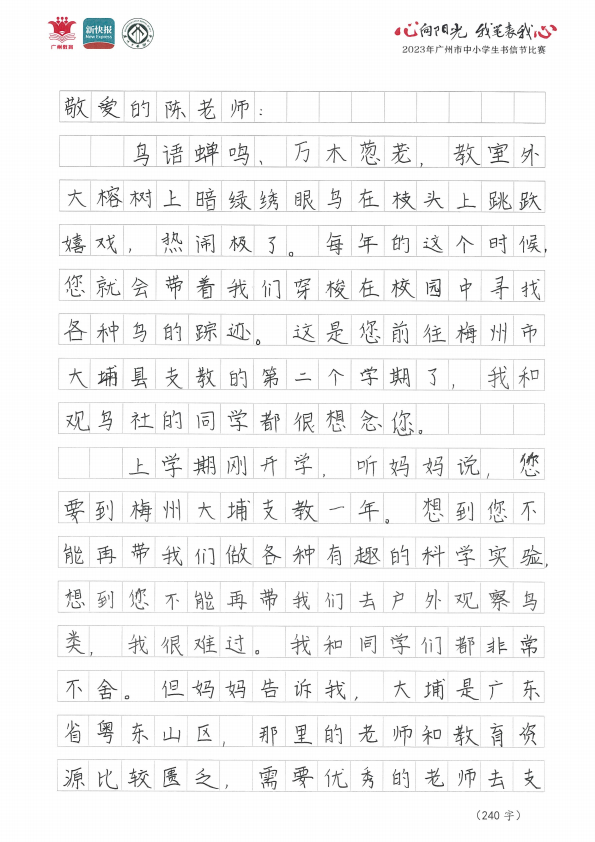 广州教育
新快报
New Express
心向阳光 我笔表我心
2023年广州市中小学生书信节比赛
敬爱的陈老师：
鸟语蝉鸣、万木葱茏，教室外
大榕树上暗绿绣眼鸟在枝头上跳跃
嬉戏，热闹极了。每年的这个时候，
您就会带着我们穿梭在校园中寻找
各种鸟的踪迹。这是您前往梅州市
大埔县支教的第二个学期了，我和
观鸟社的同学都很想念您。
上学期刚开学，听妈妈说，您
要到梅州大埔支教一年。想到您不
能再带我们做各种有趣的科学实验，
想到您不能再带我们去户外观察鸟
类，我很难过。我和同学们都非常
不舍。但妈妈告诉我，大埔是广东
省粤东山区，那里的老师和教育资
源比较匮乏，需要优秀的老师去支
（240 字）